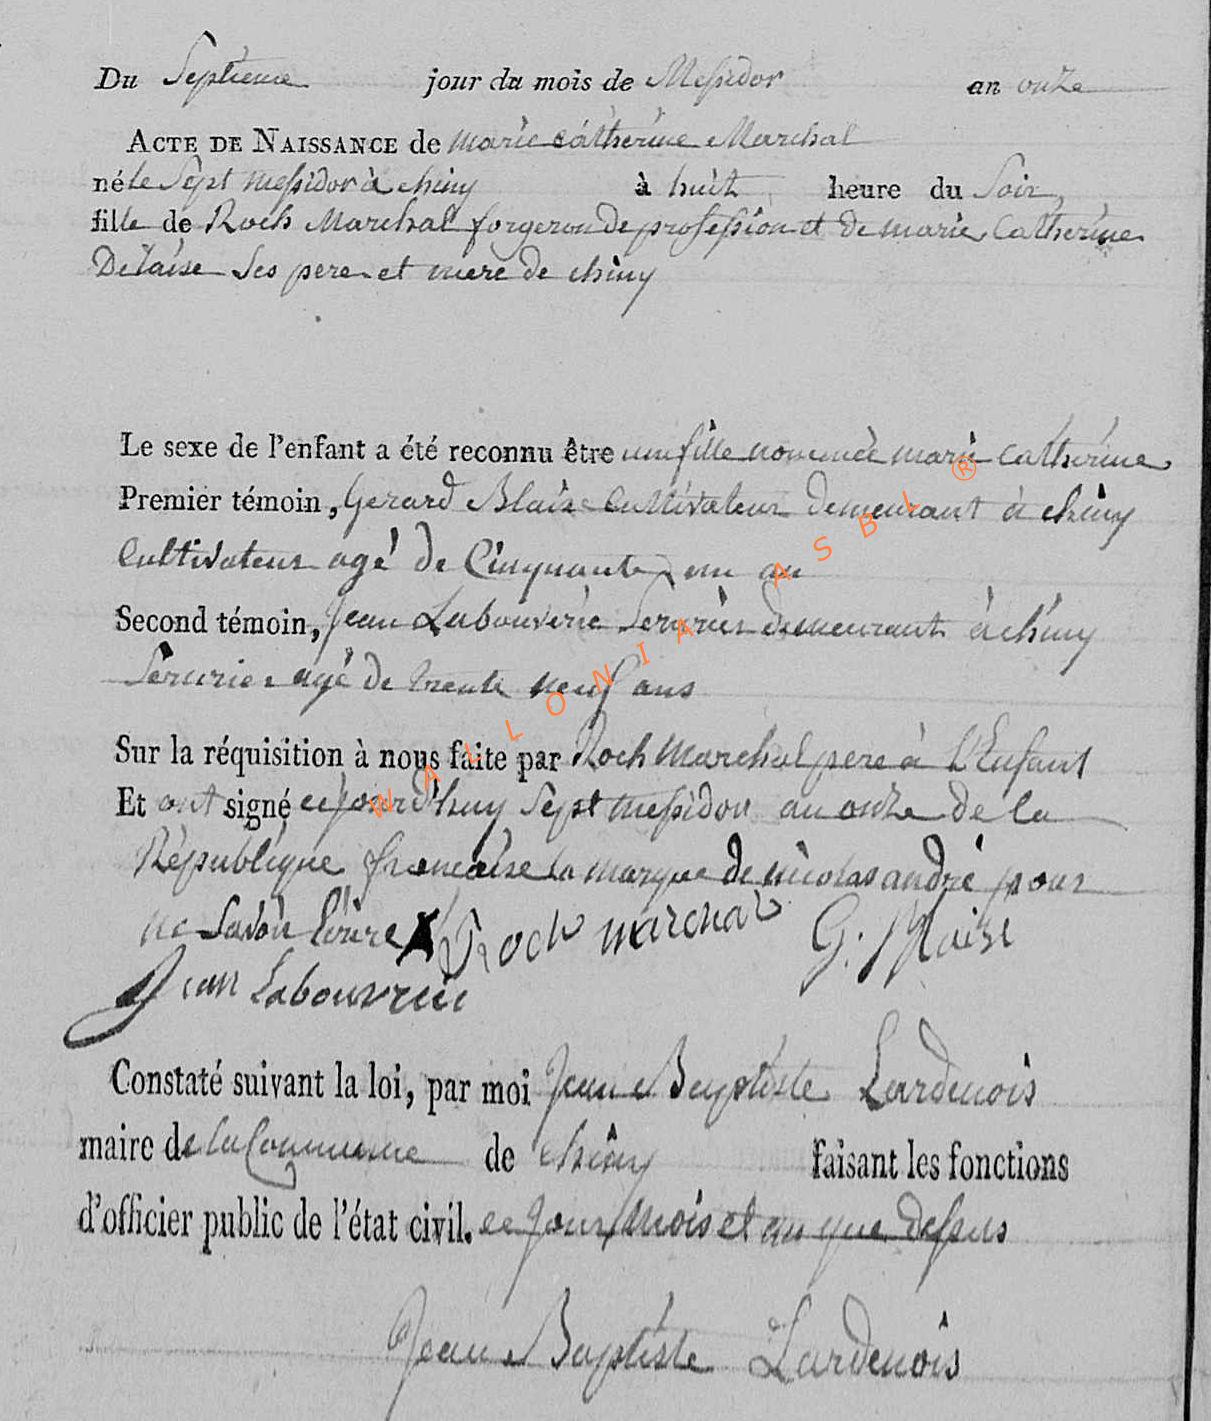 Du Septieme jour du mois de Messidor an onze
ACTE DE NAISSANCE de marie catherine Marchal
né le Sept messidor à chiny à huit heure du Soir
fille de Roch Marchal forgeron de profession et de marie Catherine
Delaise Ses pere et mere de chiny
Le sexe de l'enfant a été reconnu être une fille nommée marie catherine
Premier témoin, Gerard Blaise Cultivateur demeurant à chiny
Cultivateur agé de Cinquante un an
Second témoin, Jean Labouverie Serurier demeurant à chiny
Serurier agé de trente neuf ans
Sur la réquisition à nous faite par Roch Marchal pere à l'Enfant
Et ont signé cejourd'huy Sept messidor an onze de la
République francaise la marque de nicolas andré pour
ne Savoir Ecrire X Roch marchal G: Blaise
Jean Labouverie
Constaté suivant la loi, par moi Jean Baptiste Lardenois
maire de la Commune de chiny faisant les fonctions
d'officier public de l'état civil. ce jour mois et an que dessus
Jean Baptiste Lardenois
WALLONIA ASBL ®